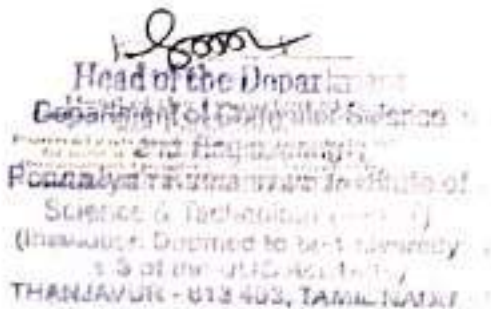 Head of the Department
Department of Computer Science
and Engineering
Ponnaiyah Ramajayam Institute of
Science & Technology
(Institution Deemed to be University
u/s 3 of the UGC Act
THANJAVUR - 613 403, TAMIL NADU